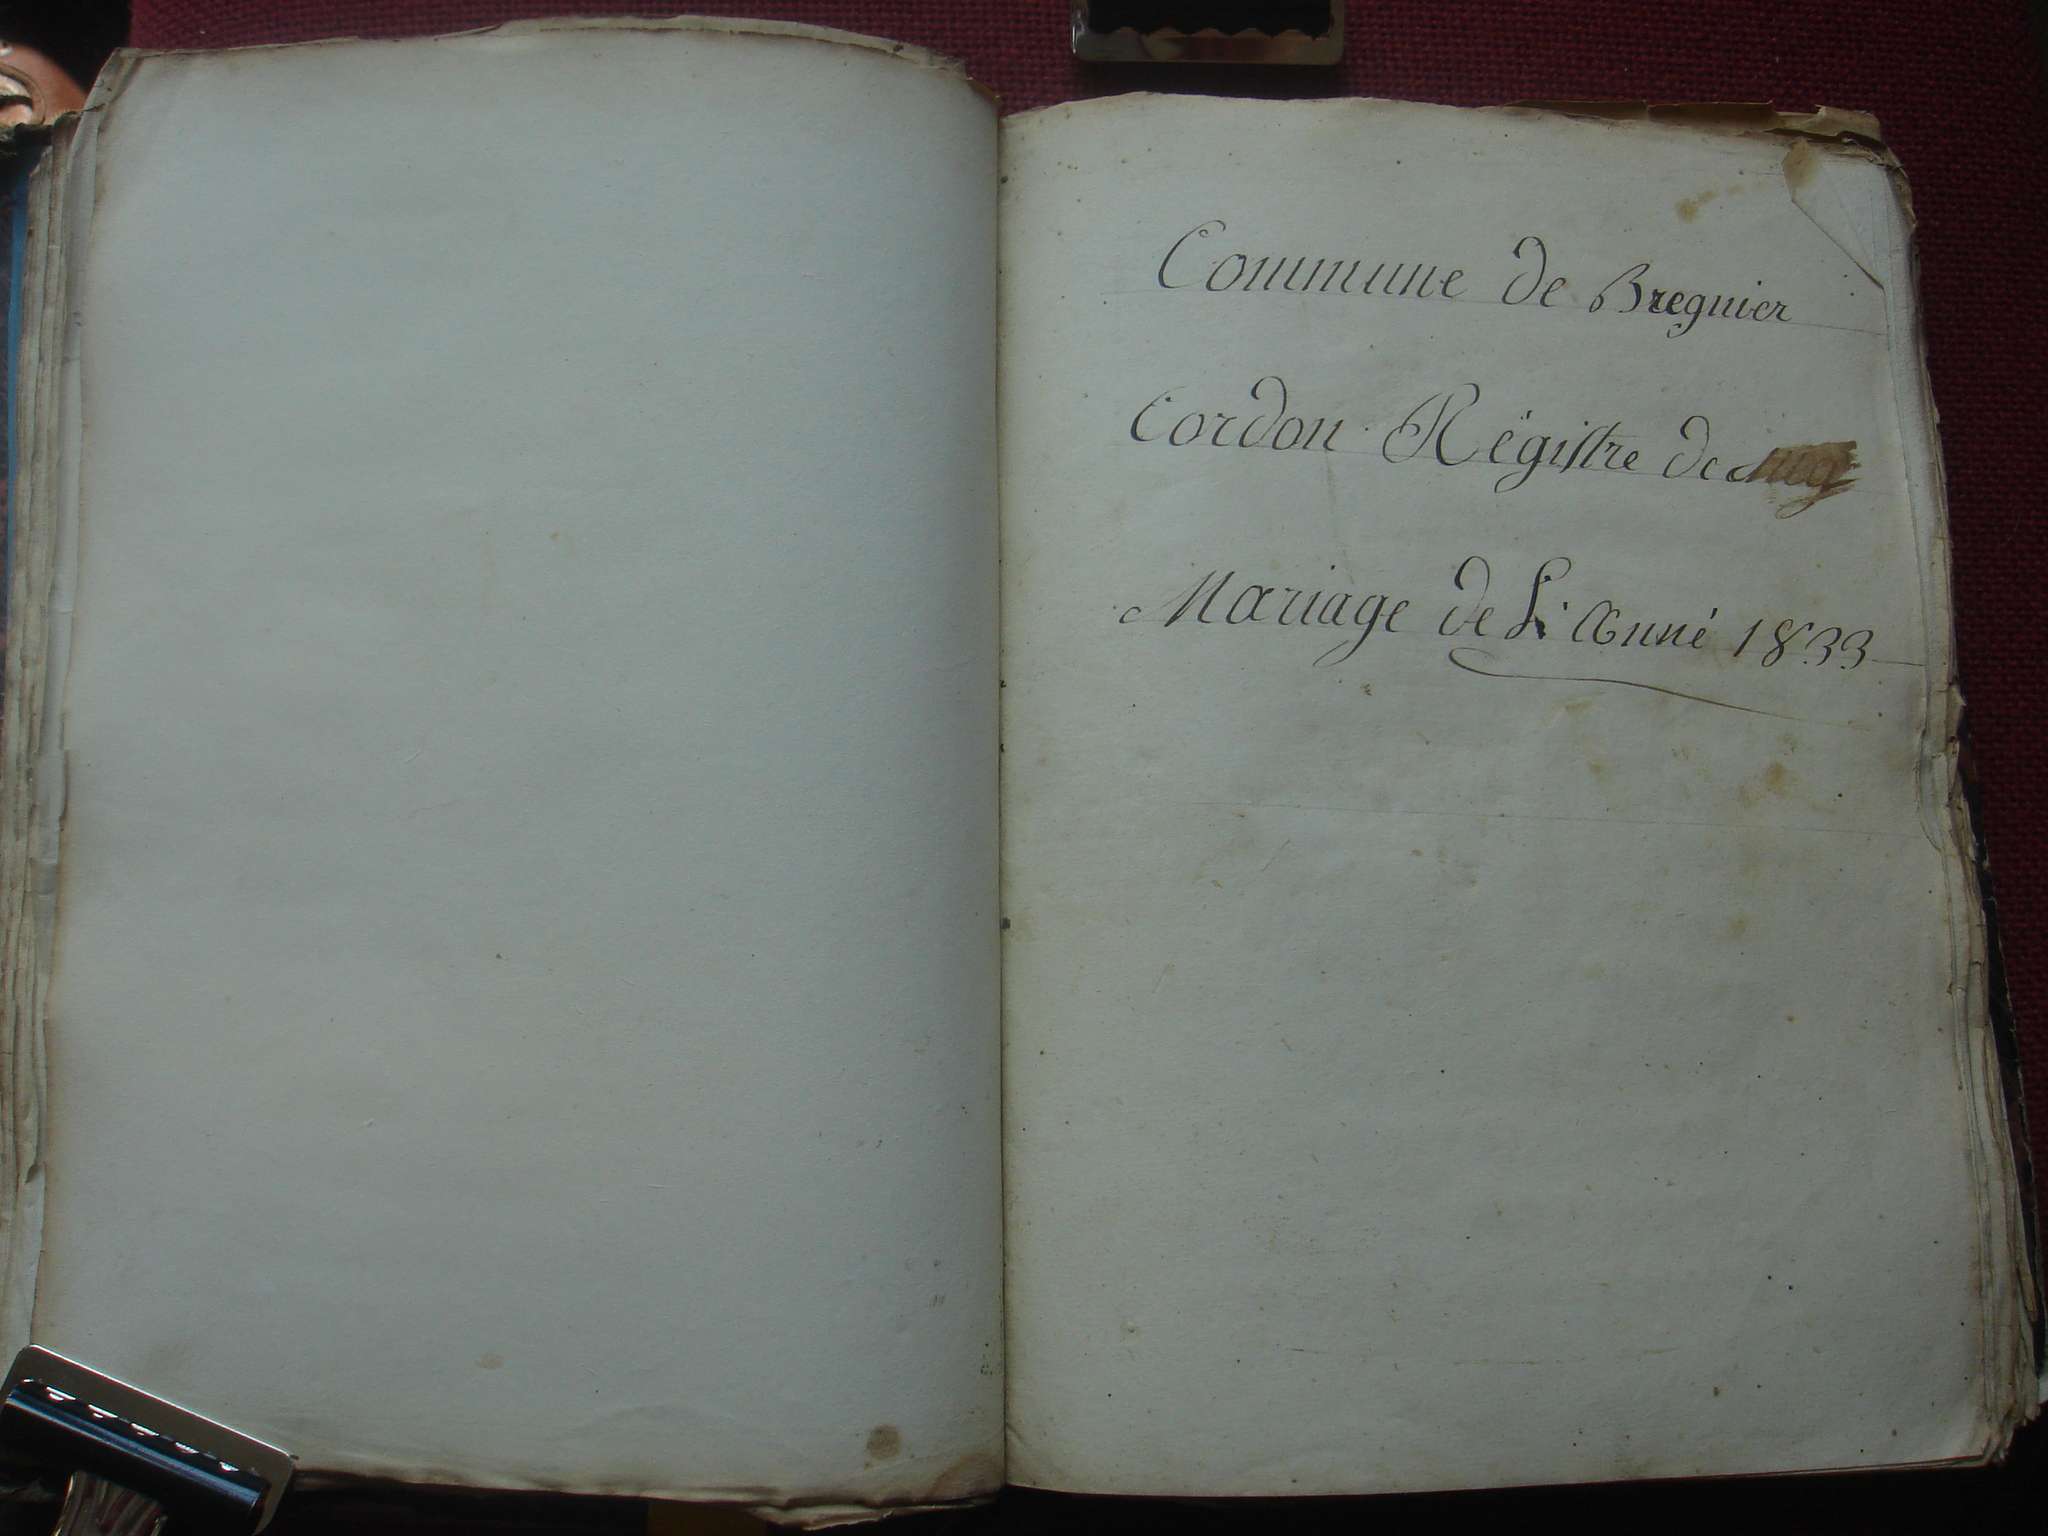 Commune de Bregnier
Cordon Régistre de
Mariage de L'Anné 1833